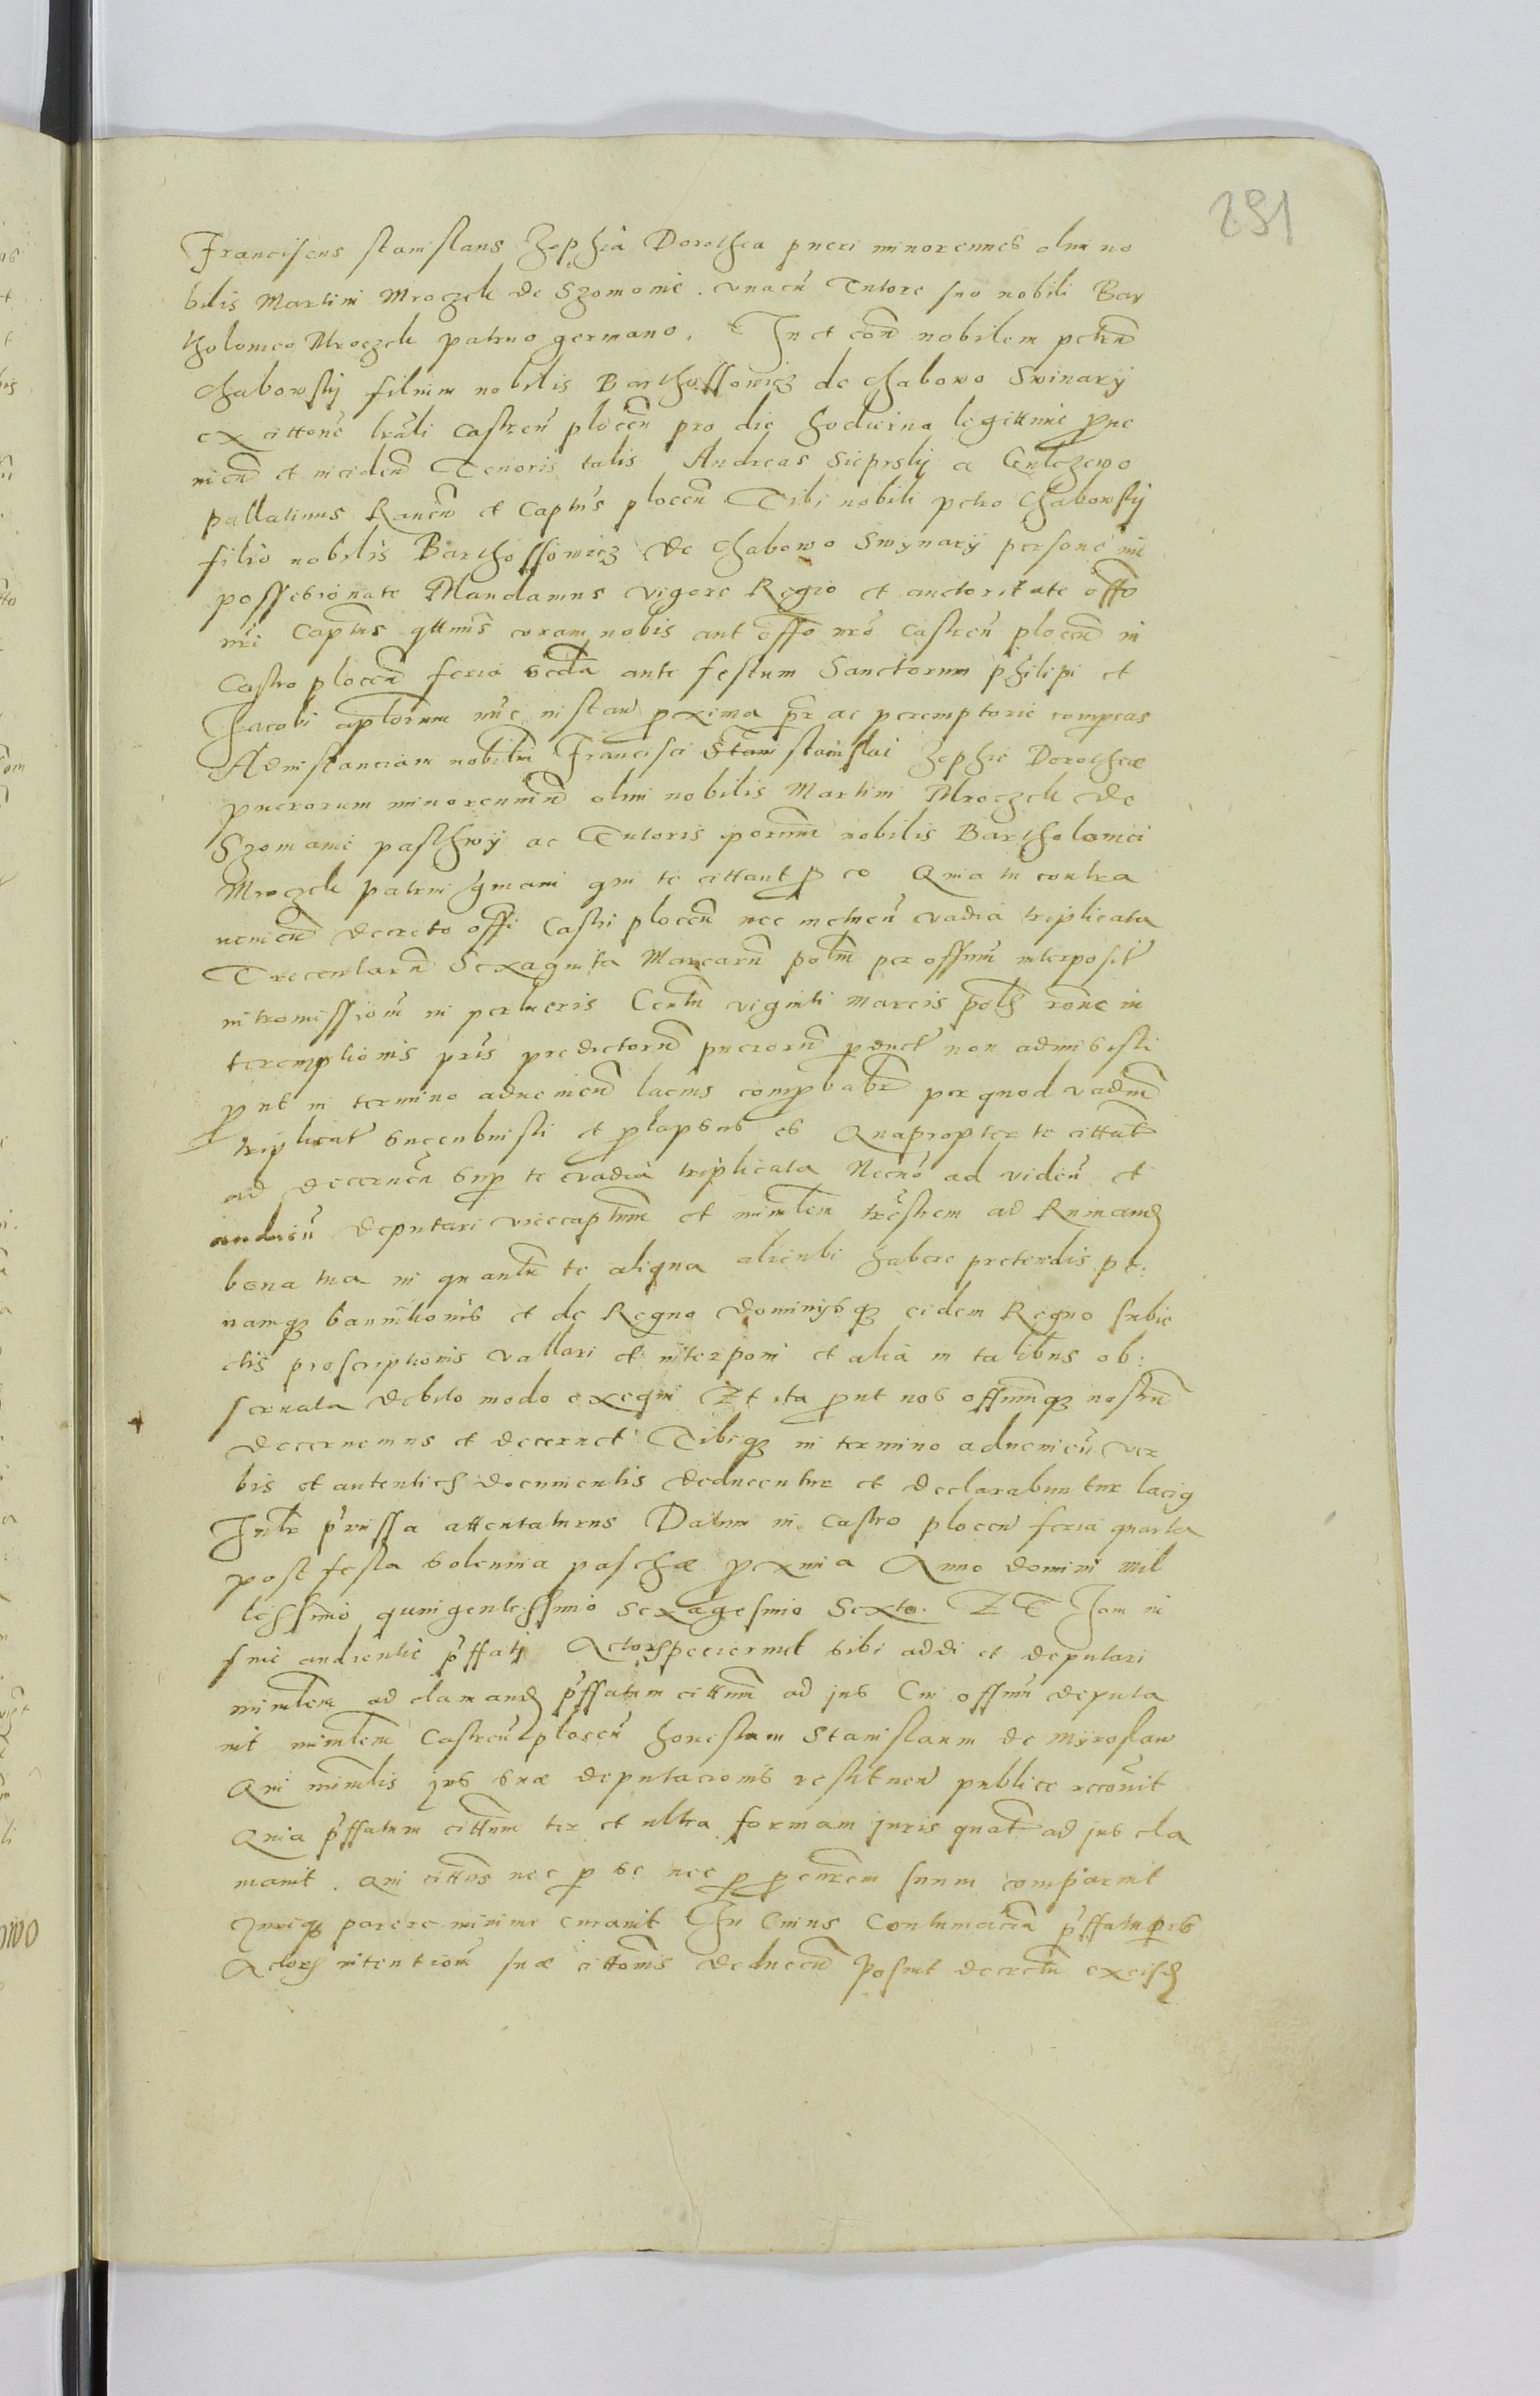 291
Franciscus Stanislaus Zophia Dorothea pueri minorennes olim no
bilis Martini Mroczek de Szomonie. vnacu Tutore suo nobili Bar
tholomeo Mroczek patruo germano. In et con nobilem petru
Chabowsky filium nobilis Barthossowicz de Chabowo Swinary
ex cittone lrali Castren plocen pro die hodierna legittime prue
nien et inciden Tenoris talis Andreas Sieprsky a
pallatinus Rauen et Captus plocen Tibi nobili petro Chabowsky
filio nobilis Barthossowicz de Chabowo Swynary persone im
possesionate Mandamus vigore Regio et auctoritate offo
nri Captus qttnus coram nobis aut offo nro Castren plocen in
Castro plocen feria scda ante festum Sanctorum philipi et
Jacobi aplorum nuc instan proxima per ac peremptorie compeas
Ad instanciam nobilium Francisci Stani stanislai Zophie Dorotheæ
puerorum minorennium olim nobilis Martini Mroczek de
Szomanie pasthwy ac Tutoris iporum nobilis Bartholomei
Mroczek patrui gmani qui te cittant p eo Quia tu contra
uenien decreto offi Castri plocen nec metuen vadia triplicata
Trecentaru Sexaginta Marcaru polm per offium interposit
intromission in perlucris Centu viginti marcis polch rone in
teremptionis pris predictoru pueroru peruct non admisisti
put in termino aduenien lacius comprobabr per quod vadiu
triplicat sucubuisti et prolapsus es Quapropter te cittat
ad decernen sup te vadia triplicata Necno ad viden et
audien deputari vicecaptum et mimlem trestrem ad Rumand
bona tua in quantu te aliqua alicubi habere pretendis pe:
namq bannitionis et de Regno dominysq eidem Regno subie
ctis proscriptionis vallari et interponi et alia in talibus ob:
seruata debito modo exequi Et ita put nos offiumq nostru
decernemus et decernet Tibiq in termino aduenien ver
bis et autenticis documentis deducentur et declarabuntur lacig
Intr prmissa attentaturus Datum in Castro plocen feria quarta
post festa solennia paschæ proxima Anno domini mil
lessimo quingentessimo Sexagesimo Sexto. Et Jam in
fine audientie pffati Actores pecierunt sibi addi et deputari
mimlem ad clamand pffatum cittum ad jus Cui offium deputa
uit mimlem Castren plocen honestum Stanislaum de Myroslaw
Qui mimlis jus suæ deputacionis restituen publice recouit
Quia pffatum cittum ter et ultra formam juris quat ad jus cla
mauit. Qui cittus nec p se nec p procurem suum comparuit
Juriq parere minime curauit In Cuius Contumacia pffatu pris
Actores intention suæ cittonis deducen posuit decretu exeisd